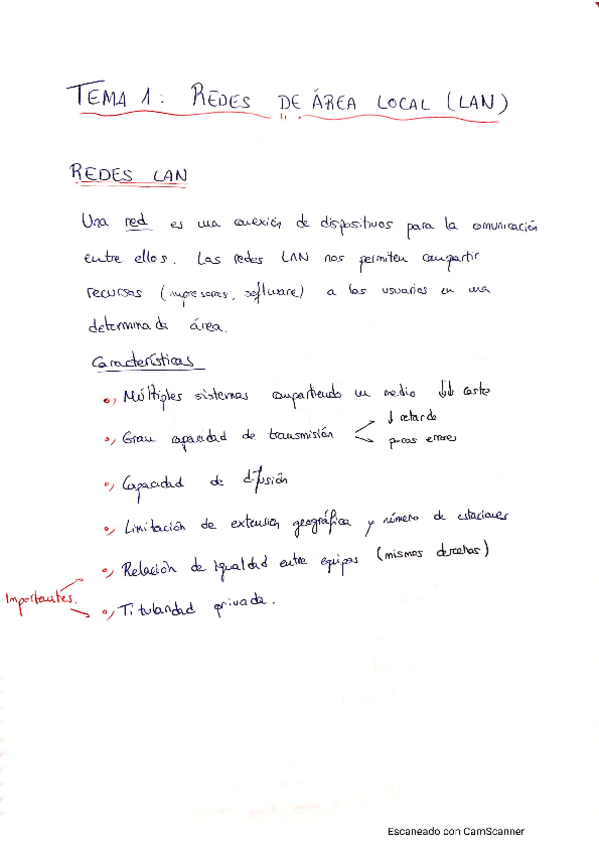 TEMA 1: REDES DE ÁREA LOCAL (LAN)
REDES LAN
Una red es una conexión de dispositivos para la comunicación
entre ellos. Las redes LAN nos permiten compartir
recursos (impresoras, software) a los usuarios en una
determinada área.
Características
•) Múltiples sistemas compartiendo un medio ↓↓ coste
•) Gran capacidad de transmisión
↓ retardo
pocos errores
•) Capacidad de difusión
•) Limitación de extensión geográfica y número de estaciones
•) Relación de igualdad entre equipos (mismos derechos)
Importantes.
•) Titularidad privada.
Escaneado con CamScanner